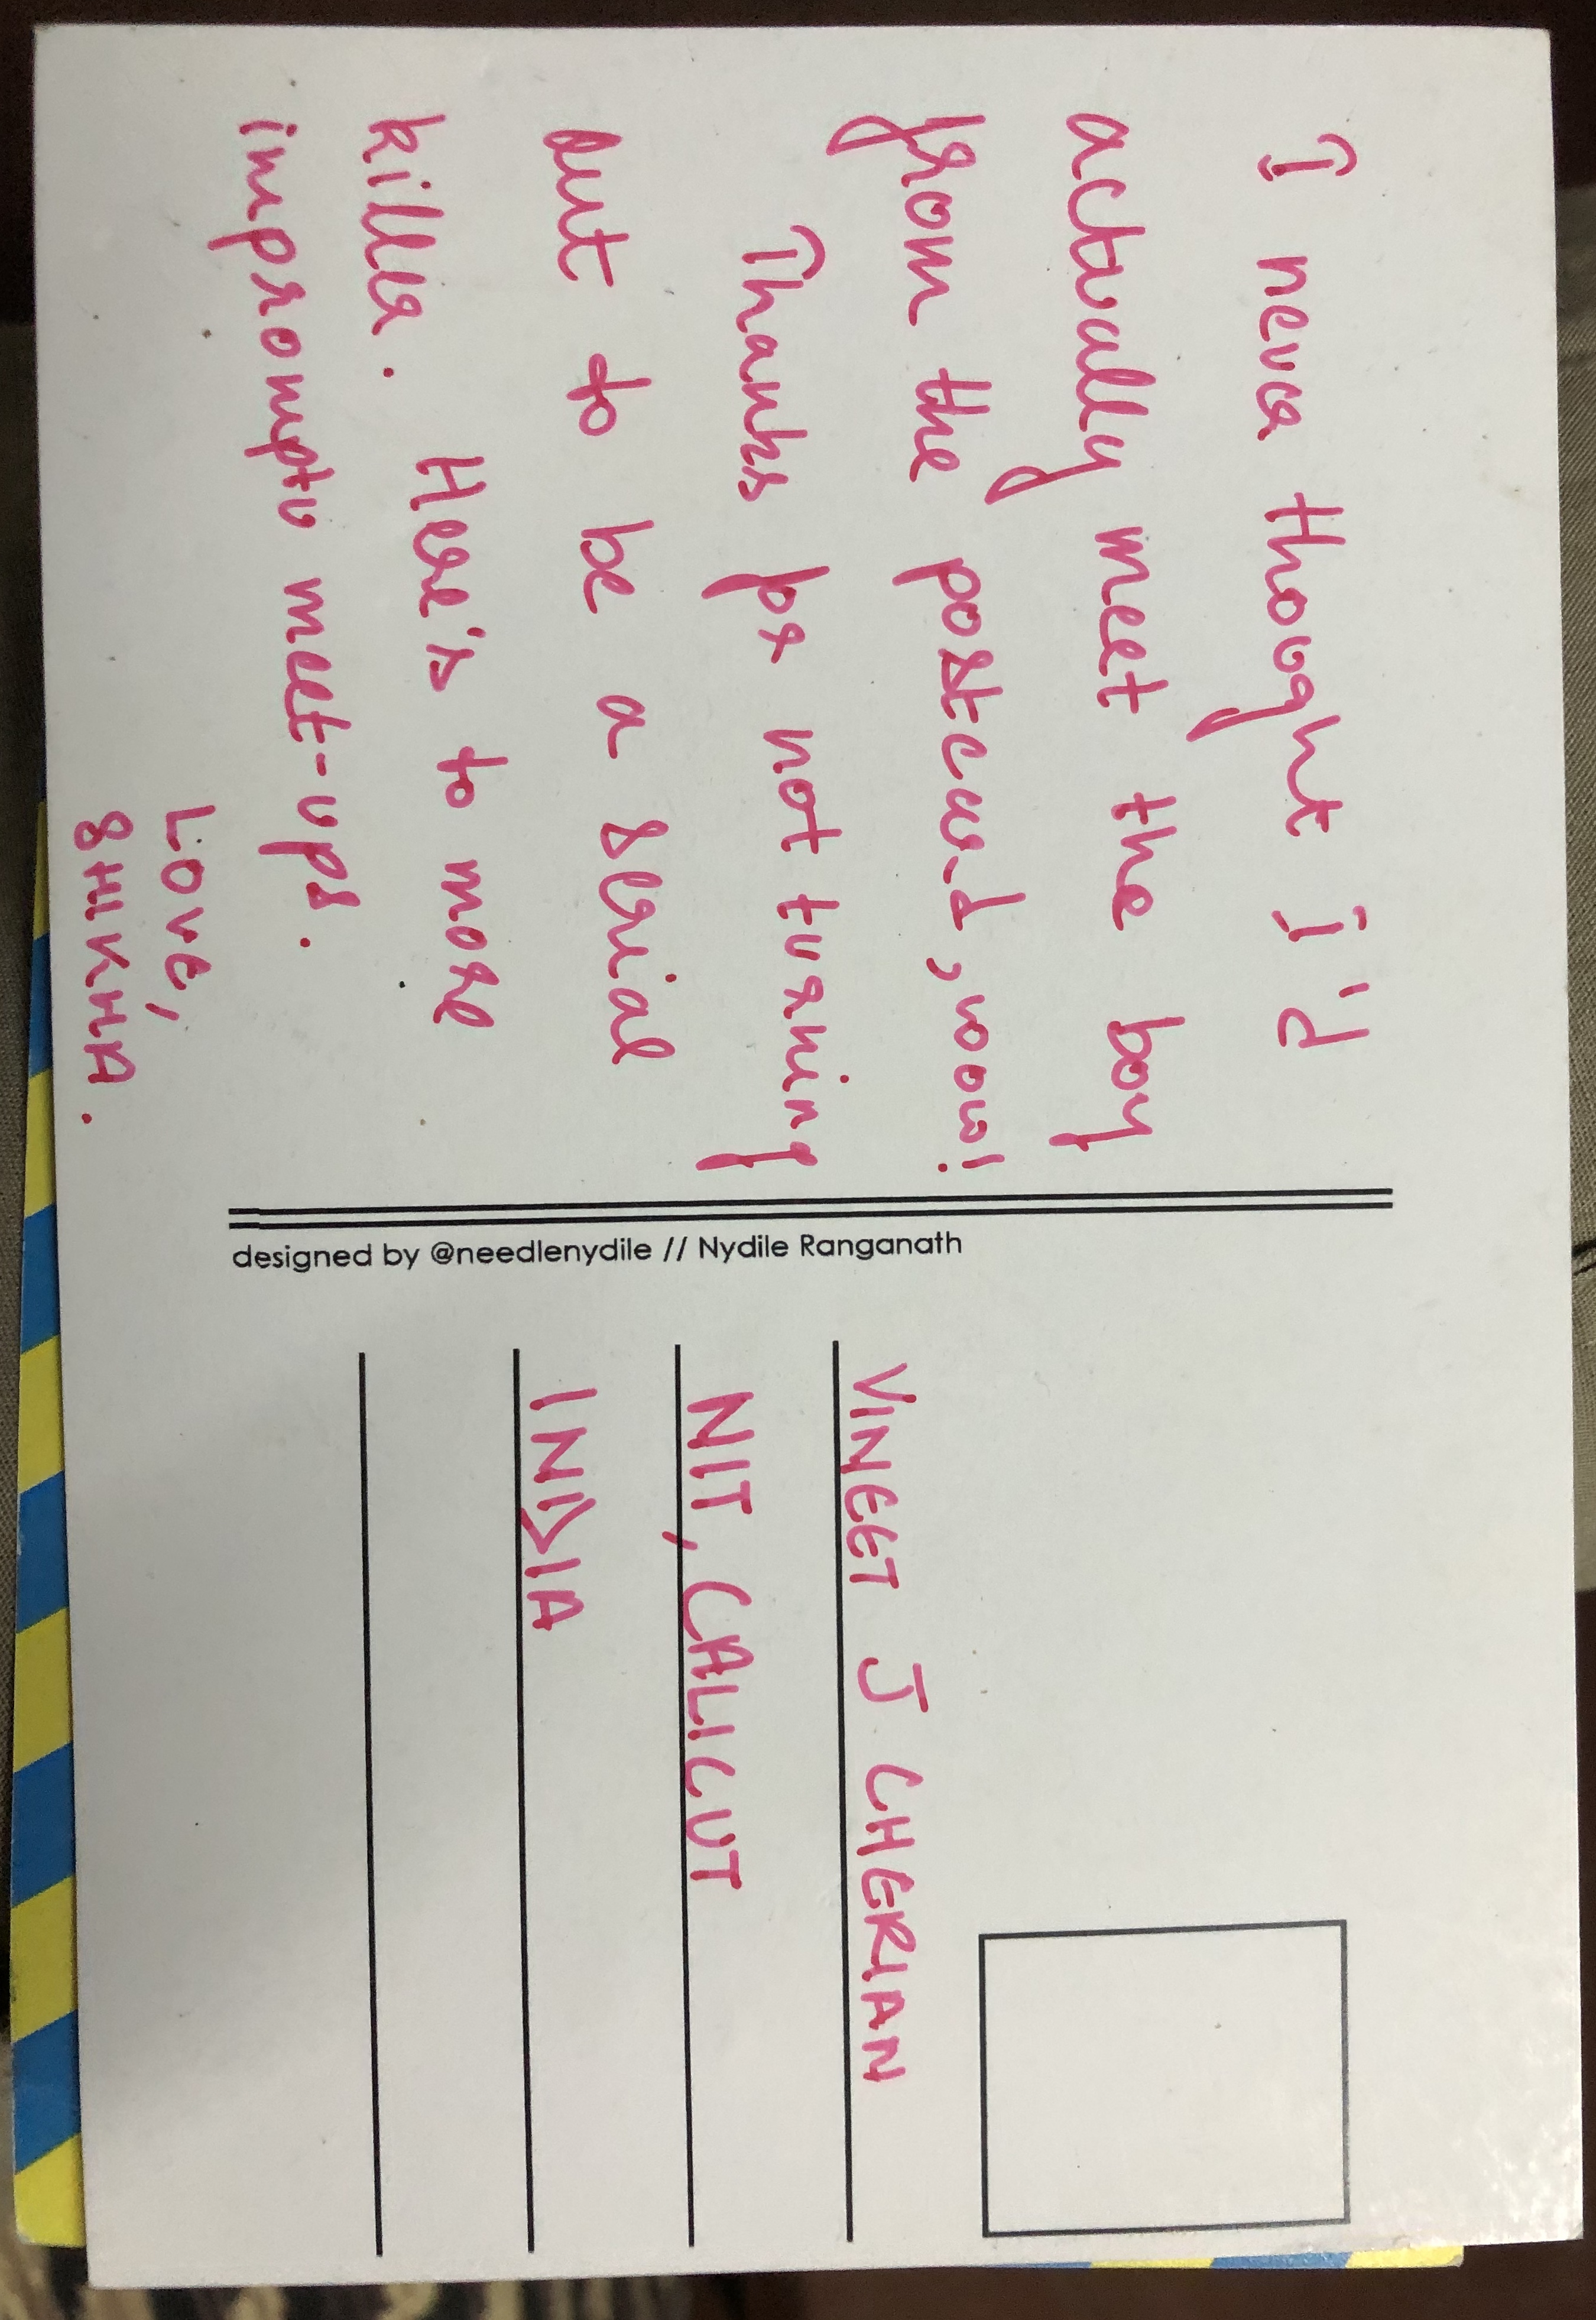 I never thought I'd
actually meet the boy
from the postcard, wow!
Thanks for not turning
out to be a serial
killer. Here's to more
impromptu meet-ups.
Love,
SHIKHA.
designed by @needlenydile // Nydile Ranganath
VINEET J CHERIAN
NIT, CALICUT
INDIA